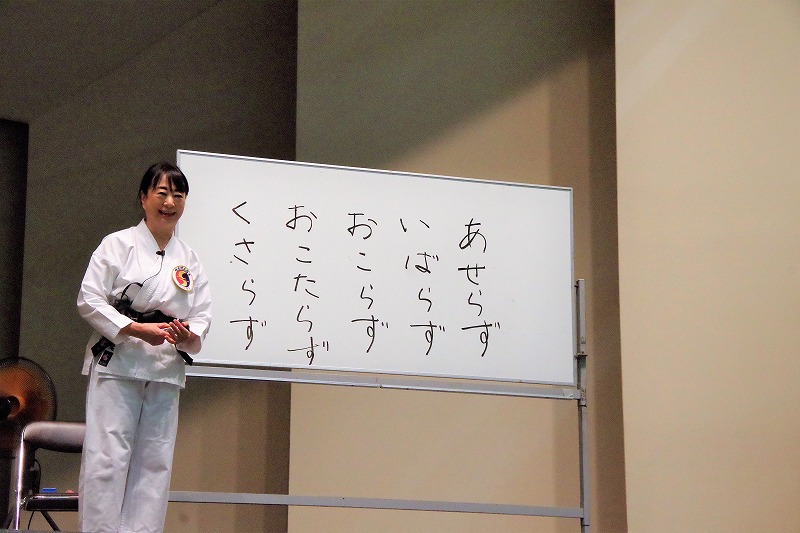 あせらず
いばらず
おこらず
おこたらず
くさらず